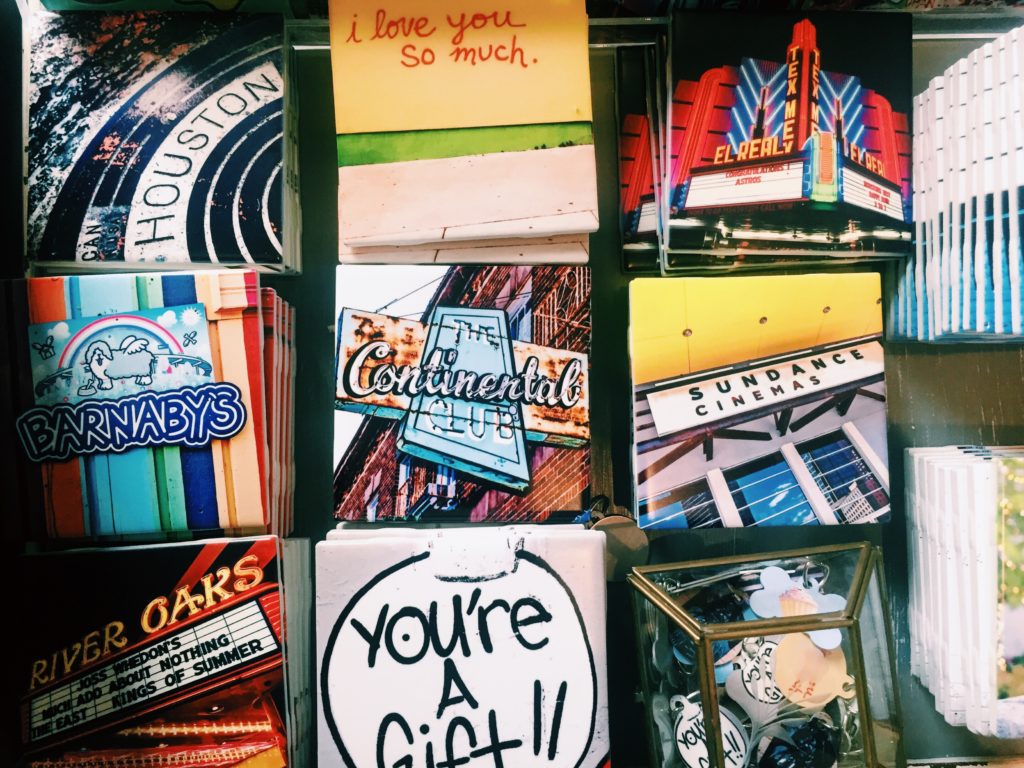 HOUSTON
CAN
i love you
so much.
TEX MEX
TEX MEX
EL REAL
EL REAL
CONGRATULATIONS!
ASTROS
BARNABY'S
THE
Continental
CLUB
SUNDANCE
CINEMAS
RIVER OAKS
JOSS WHEDON'S
MUCH ADO ABOUT NOTHING
THE EAST KINGS OF SUMMER
You're
A
Gift!!